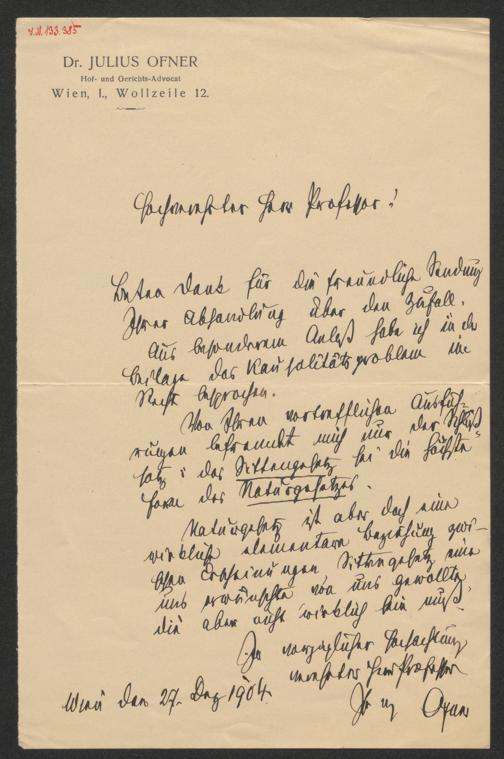 4.II.133.385
Dr. JULIUS OFNER
Hof- und Gerichts-Advocat
Wien, I., Wollzeile 12.
Hochverehrter Herr Professor!
Besten Dank für die freundliche Sendung
Ihrer Abhandlung über den Zufall.
Aus besonderem Anlaß habe ich in der
Beilage das Kausalitätsproblem im
Recht besprochen.
Von Ihren vortrefflichen Ausfüh-
rungen befremdet mich nur der Schluß-
satz: das Sittengesetz sei die höchste
Form des Naturgesetzes.
Naturgesetz ist aber doch eine
wirkliche elementare Beziehung zwi-
schen Erscheinungen Sittengesetz eine
uns erwünschte von uns gewollte,
die aber nicht wirklich sein muß.
In vorzüglicher Hochachtung
verehrter Herr Professor
Ihr Ofner
Wien den 27. Dez 1904.